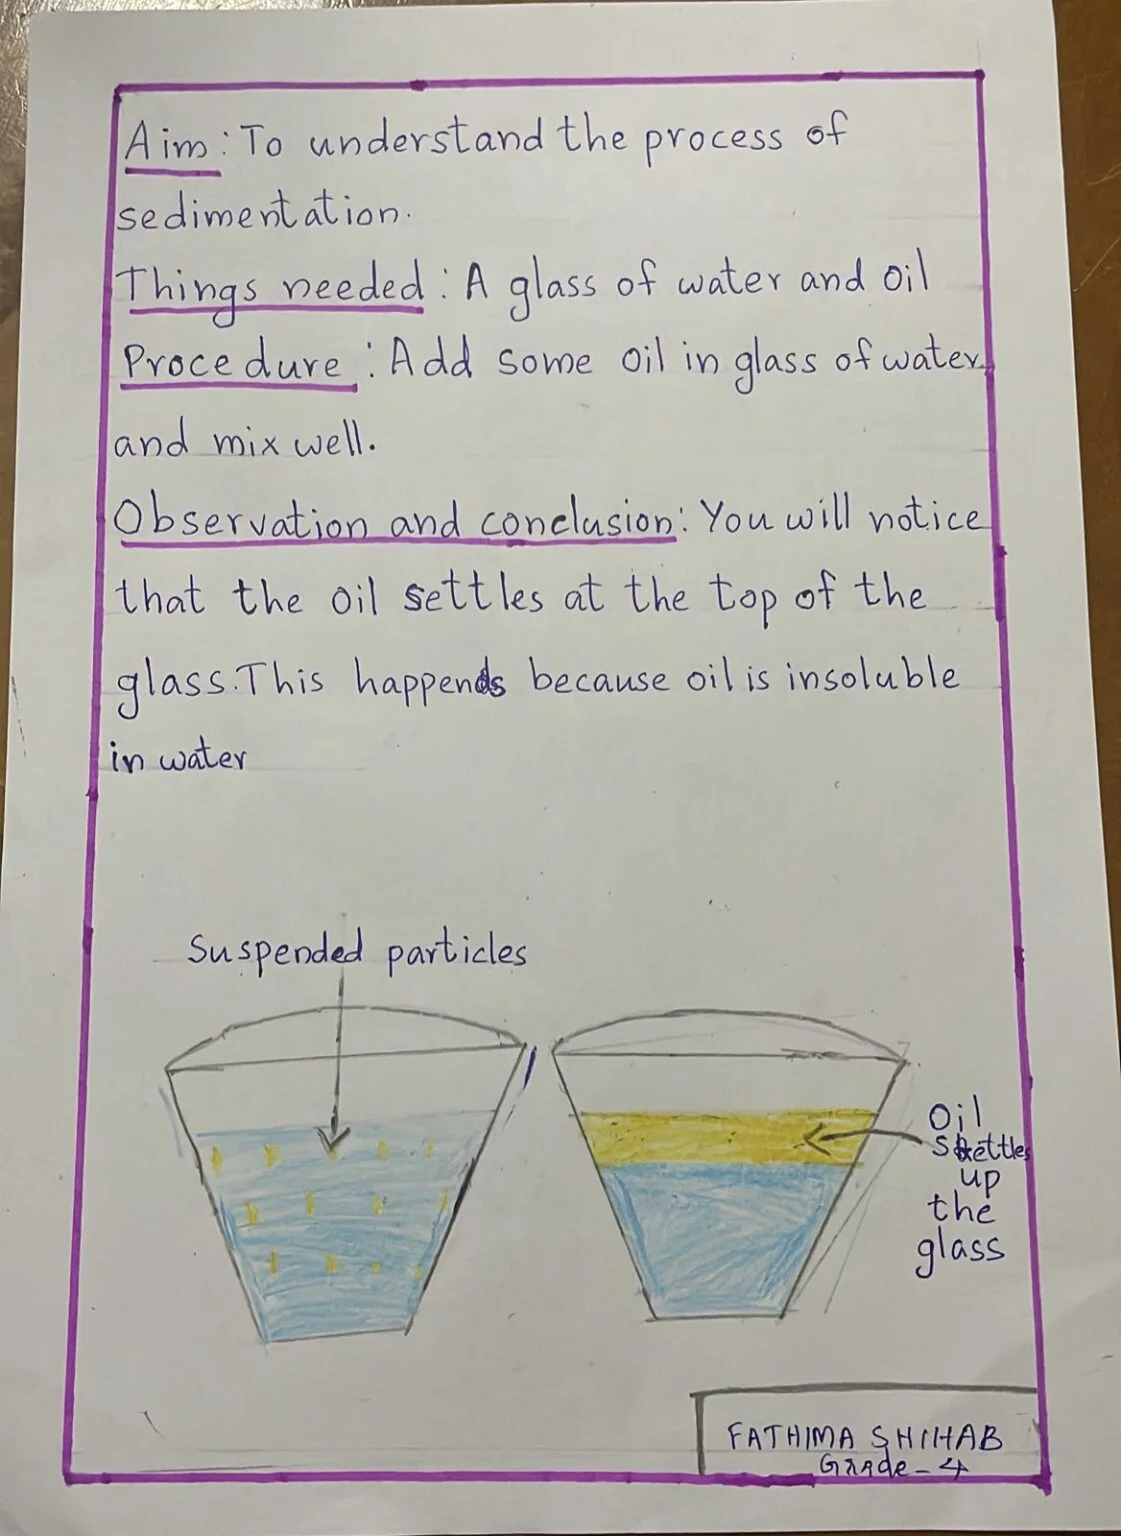 Aim: To understand the process of
sedimentation.
Things needed: A glass of water and oil
Procedure: Add some oil in glass of water
and mix well.
Observation and conclusion: You will notice
that the oil settles at the top of the
glass. This happends because oil is insoluble
in water
Suspended particles
Oil
settles
up
the
glass
FATHIMA SHIHAB
Grade - 4